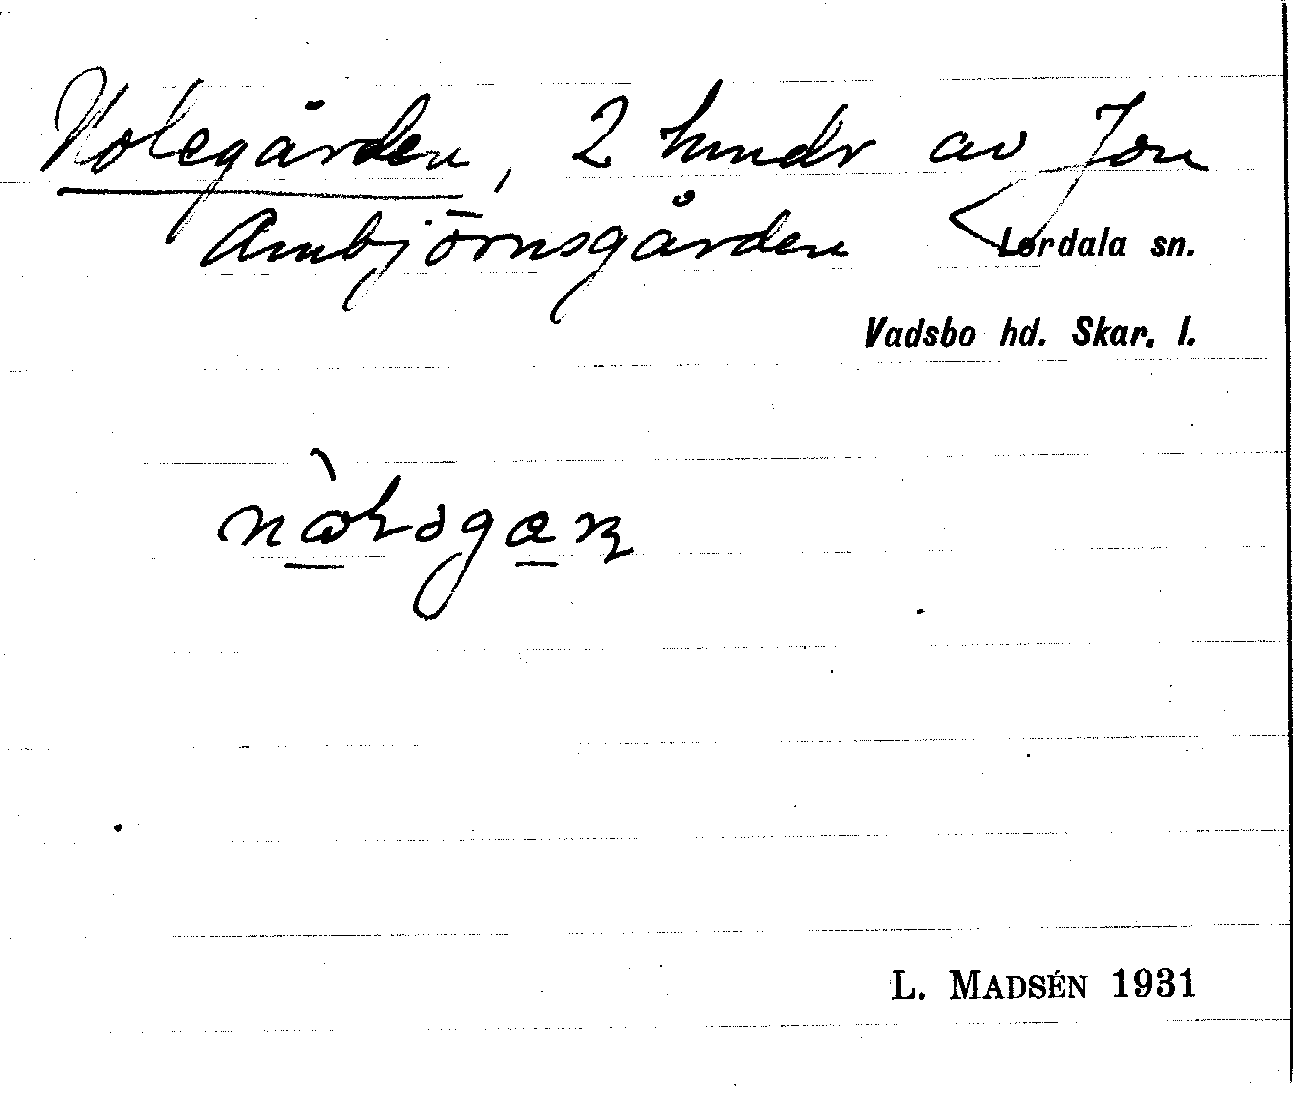 Nolegården, 2 lundr av Jon
Ambjörnsgården
Lerdala sn.
Vadsbo hd. Skar. l.
L. MADSÉN 1931